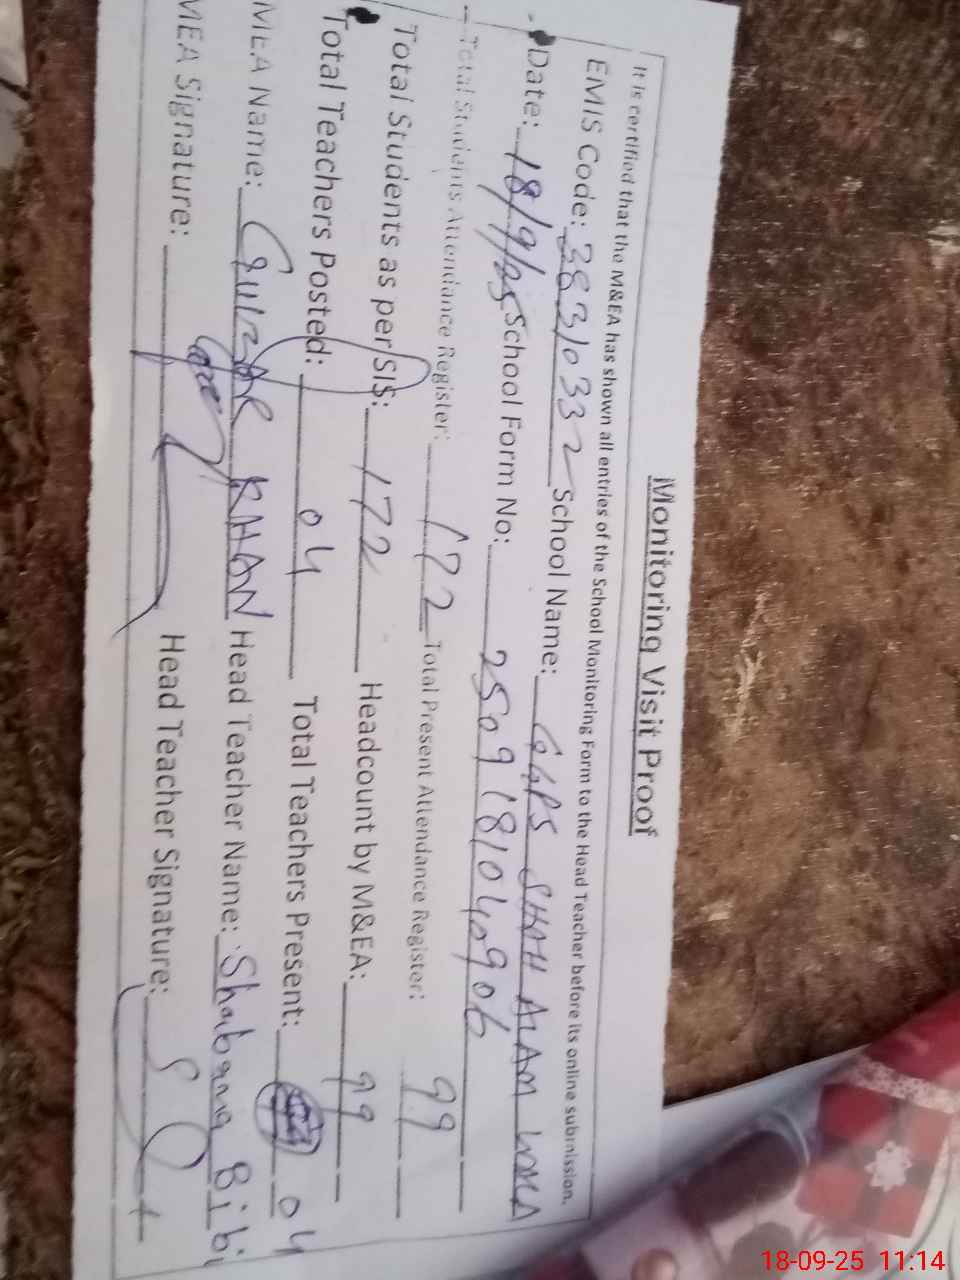 Monitoring Visit Proof
It is certified that the M&EA has shown all entries of the School Monitoring Form to the Head Teacher before its online submission.
EMIS Code: 38310332 School Name: GGPS SHAH ALAM
Date: 18/9/25 School Form No: 2509181040906
Total Students Attendance Register: 172 Total Present Attendance Register: 99
Total Students as per SIS: 172 Headcount by M&EA: 99
Total Teachers Posted: 04 Total Teachers Present: 04
MEA Name: GulzAR KHAN Head Teacher Name: Shabana Bibi
MEA Signature: Head Teacher Signature:
18-09-25 11:14